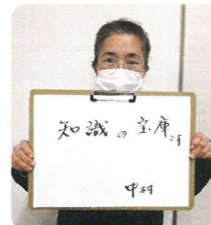 知識の宝庫です
中村